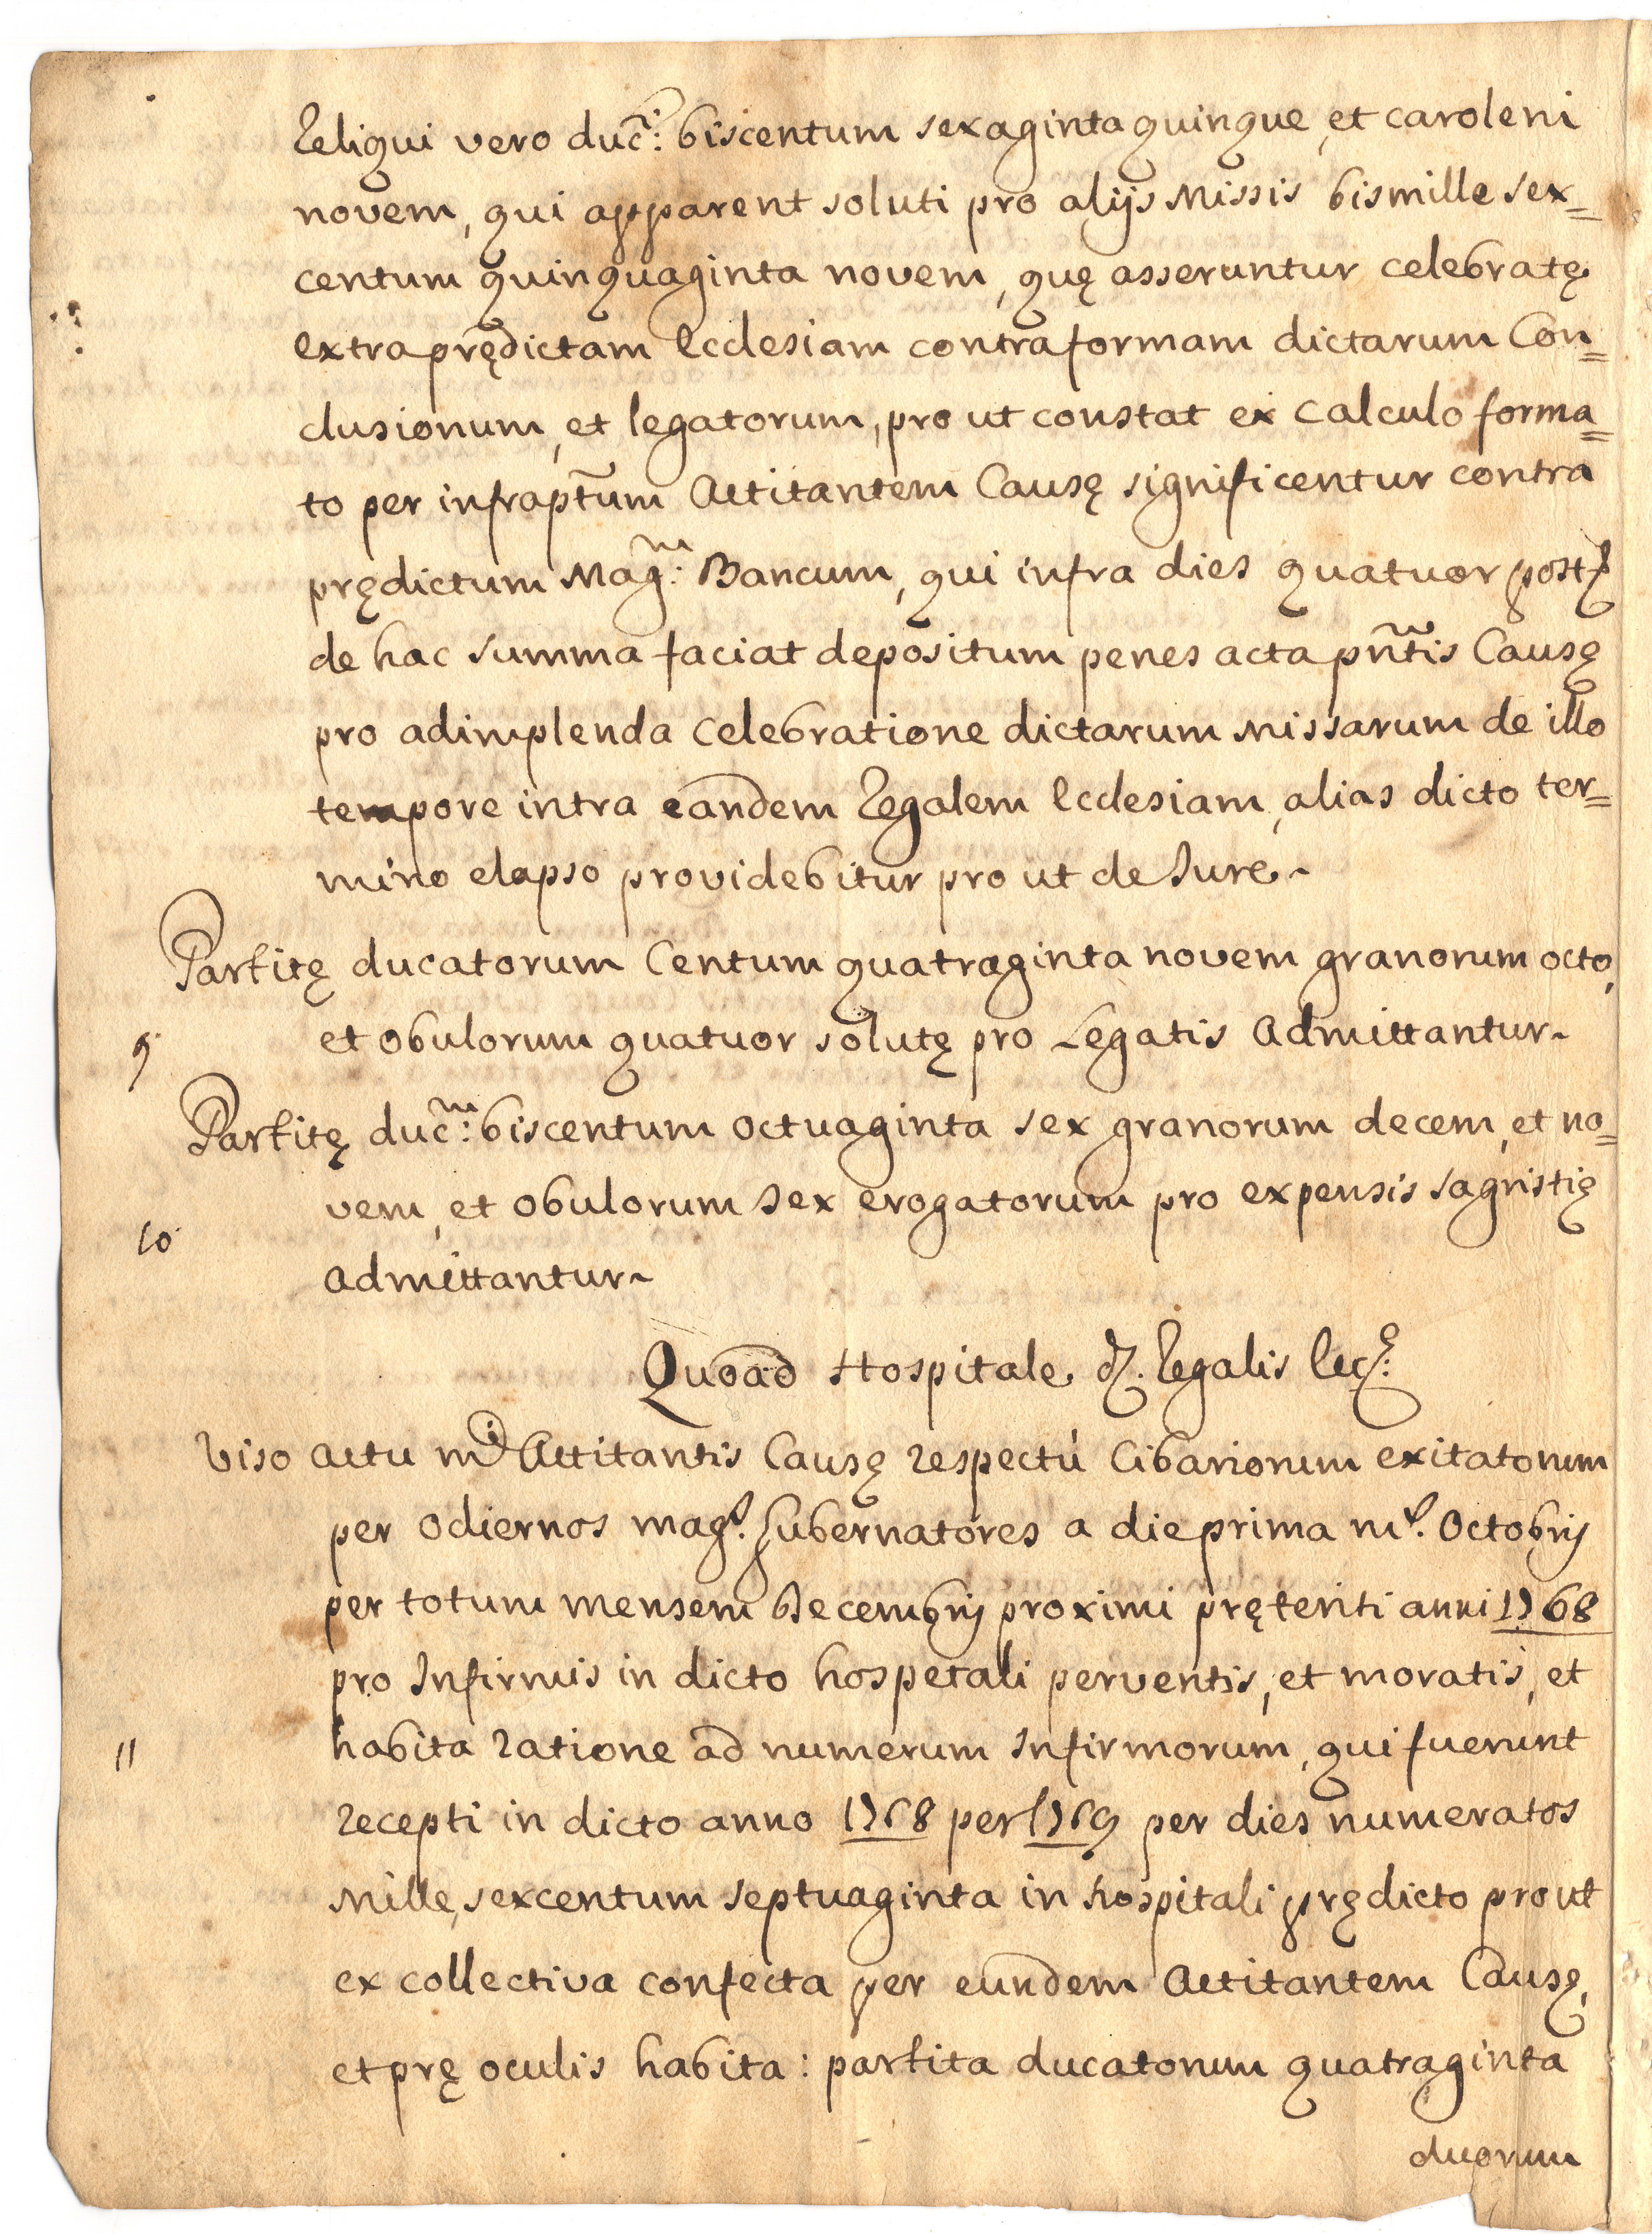 Reliqui vero duc.ti: biscentum sexaginta quinque, et caroleni
novem, qui apparent soluti pro alijs Missis bismille sex=
centum quinquaginta novem, quę asseruntur celebratę
extra prędictam Ecclesiam contra formam dictarum Con=
clusionum, et legatorum, pro ut constat ex Calculo forma=
to per infraptũm Actitantem Causę significentur contra
prędictum Mag.m: Bancum, qui infra dies quatuor
de hac summa faciat depositum penes acta pñtis Causę
pro adimplenda Celebratione dictarum Missarum de illo
tempore intra eandem Regalem Ecclesiam, alias dicto ter=
mino elapso providebitur pro ut de Jure~
Partitę ducatorum Centum quatraginta novem granorum octo,
9. et obulorum quatuor solutę pro Legatis Admittantur~
Partitę duc.m: biscentum octuaginta sex granorum decem, et no=
vem, et obulorum sex erogatorum pro expensis sagristię
10. Admittantur~
Quoad Hospitale d. Regalis Ecc.ę:
Viso actu m.i Actitantis Causę respectù Cibariorum exitatorum
per odiernos mag. Gubernatores a die prima m. Octobris
per totum mensem Decembris proximi pręteriti anni 1768
pro Infirmis in dicto hospetali perventis, et moratis, et
11 habita ratione ad numerum Infirmorum, qui fuerunt
recepti in dicto anno 1768 per 1769 per dies numeratos
Mille, sexcentum septuaginta in hospitali prędicto prout
ex collectiva confecta per eundem Actitantem Causę,
et prę oculis habita: partita ducatorum quatraginta
duorum